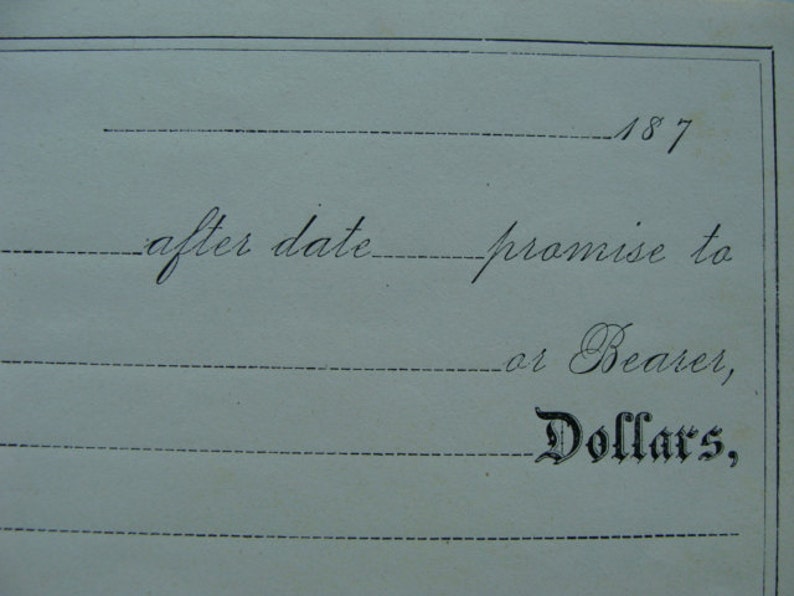 187
after date promise to
or Bearer,
Dollars,